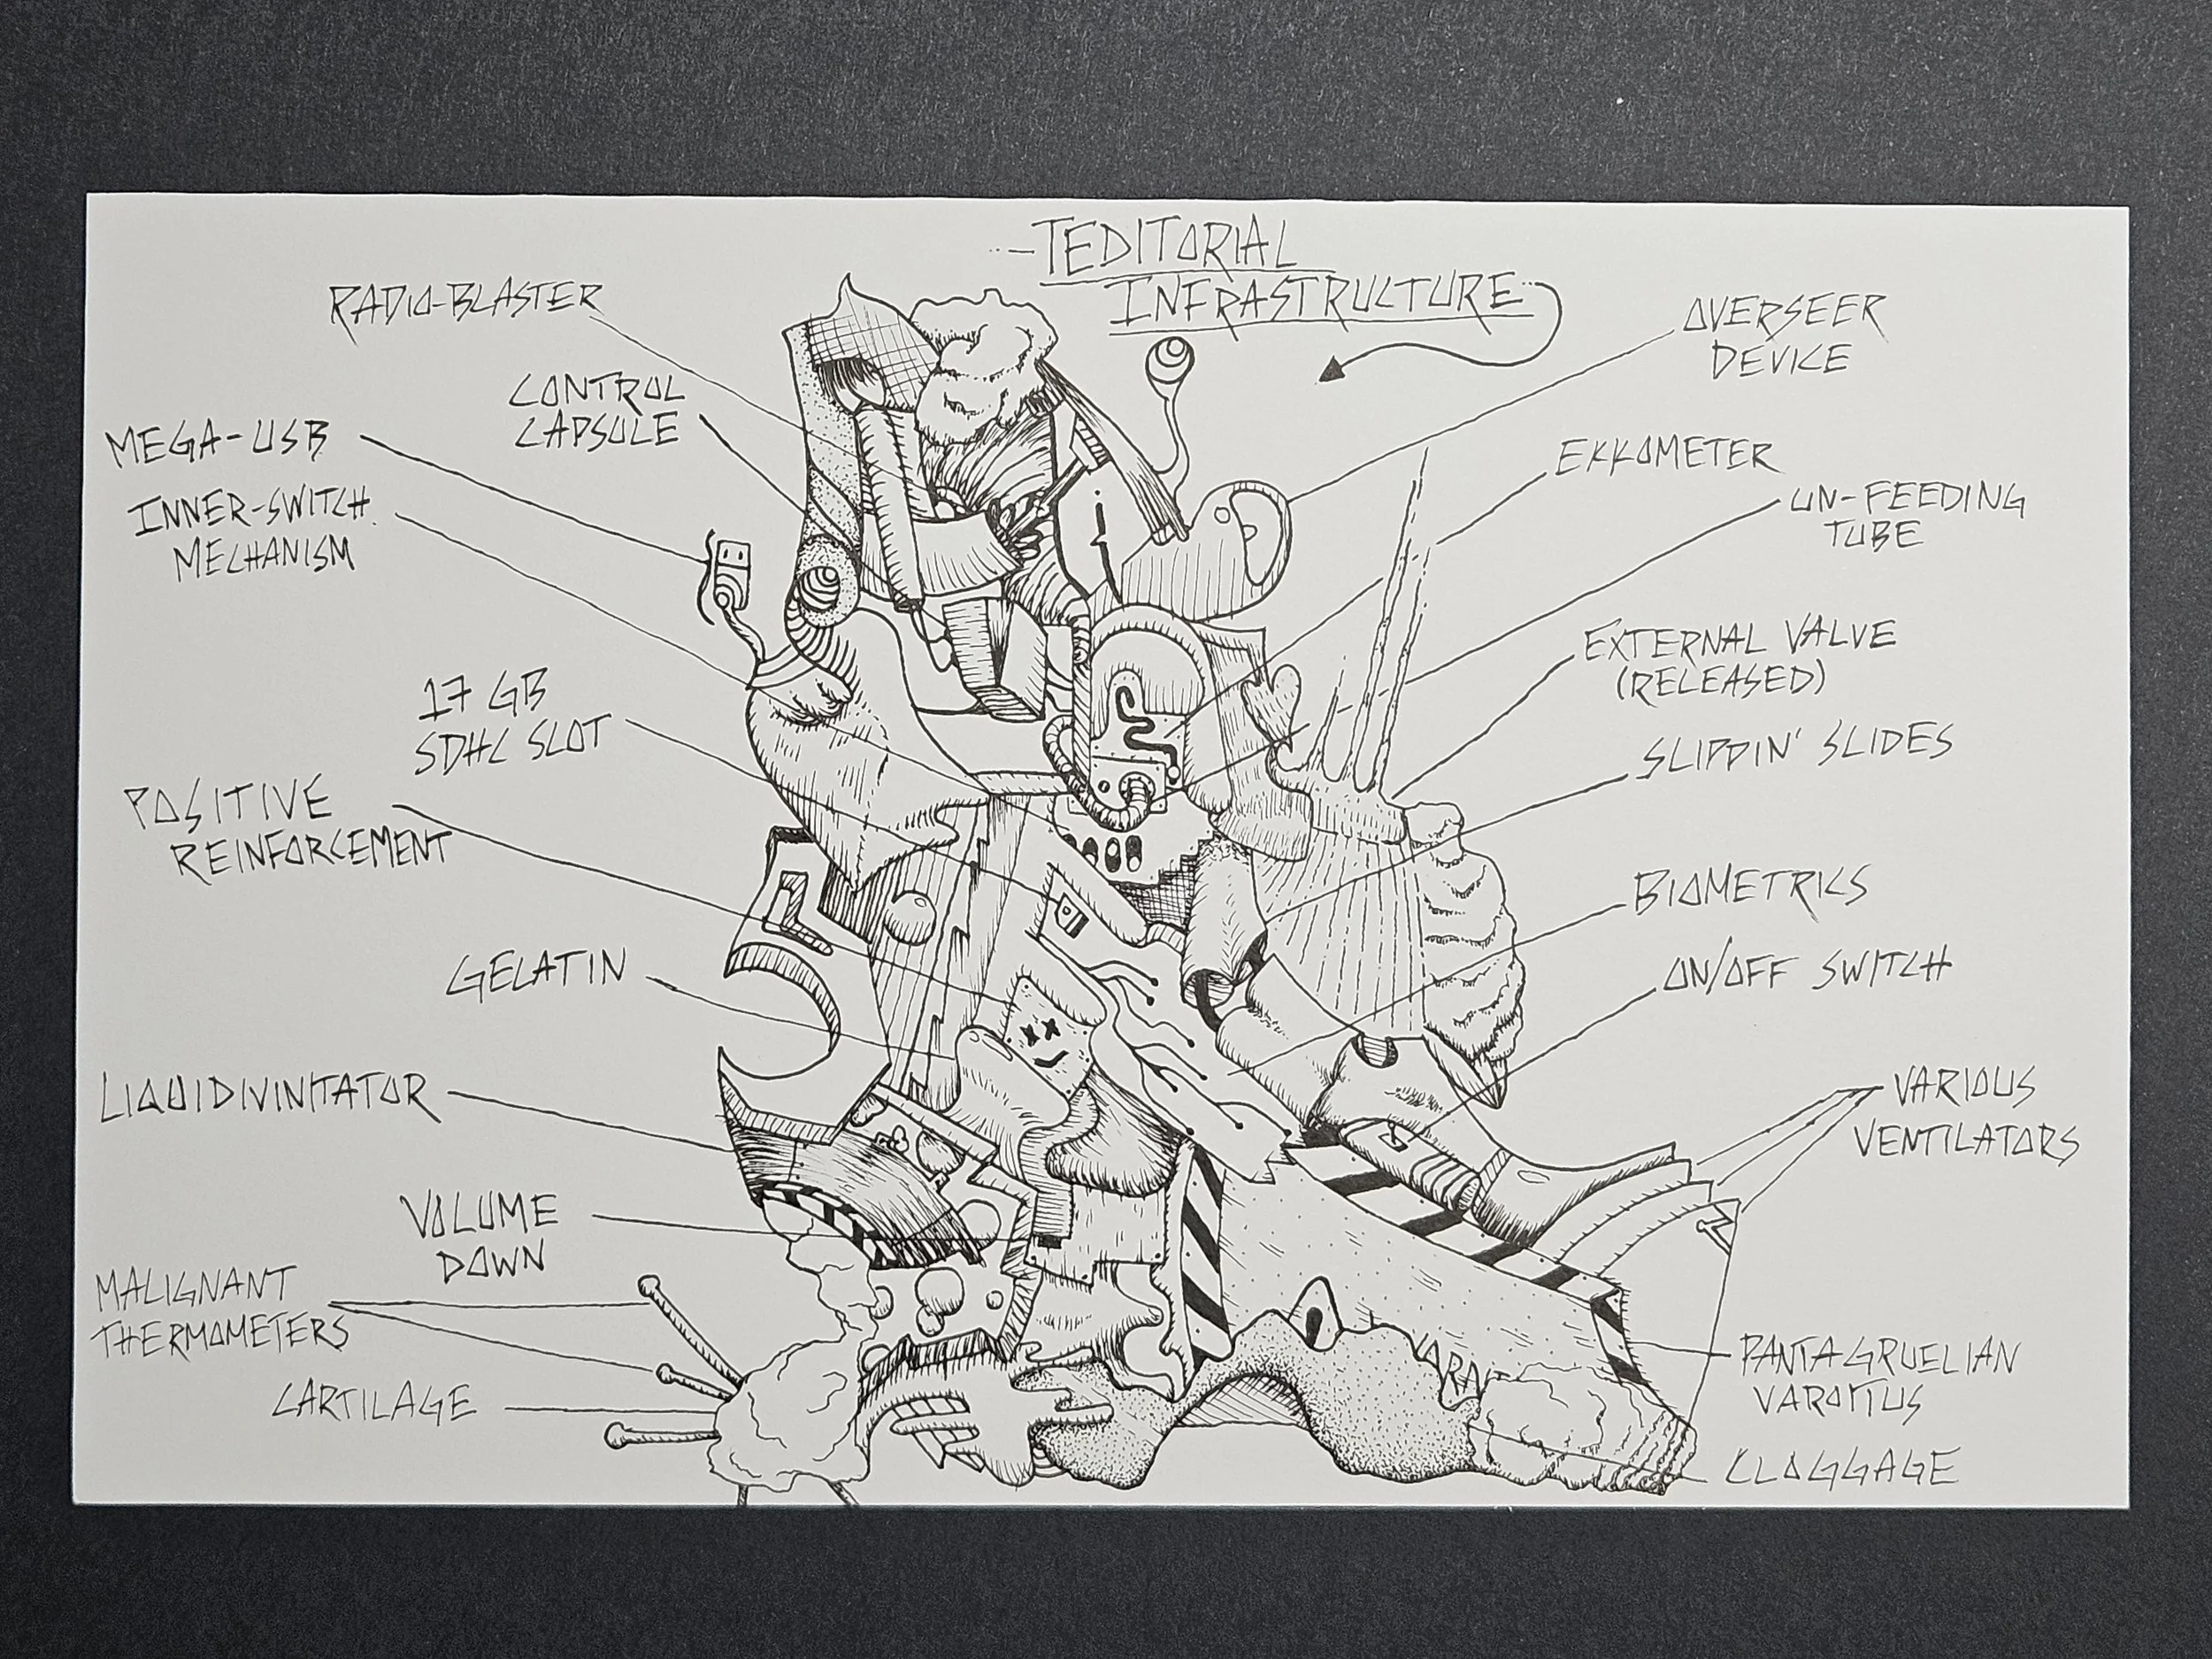 TEDITORIAL
INFRASTRUCTURE
RADIO-BLASTER
CONTROL
CAPSULE
MEGA-USB
INNER-SWITCH
MECHANISM
17 GB
SDHC SLOT
POSITIVE
REINFORCEMENT
GELATIN
LIQUIDIVINITATOR
VOLUME
DOWN
MALIGNANT
THERMOMETERS
CARTILAGE
OVERSEER
DEVICE
EKKOMETER
UN-FEEDING
TUBE
EXTERNAL VALVE
(RELEASED)
SLIPPIN' SLIDES
BIOMETRICS
ON/OFF SWITCH
VARIOUS
VENTILATORS
PANTAGRUELIAN
CLOGGAGE